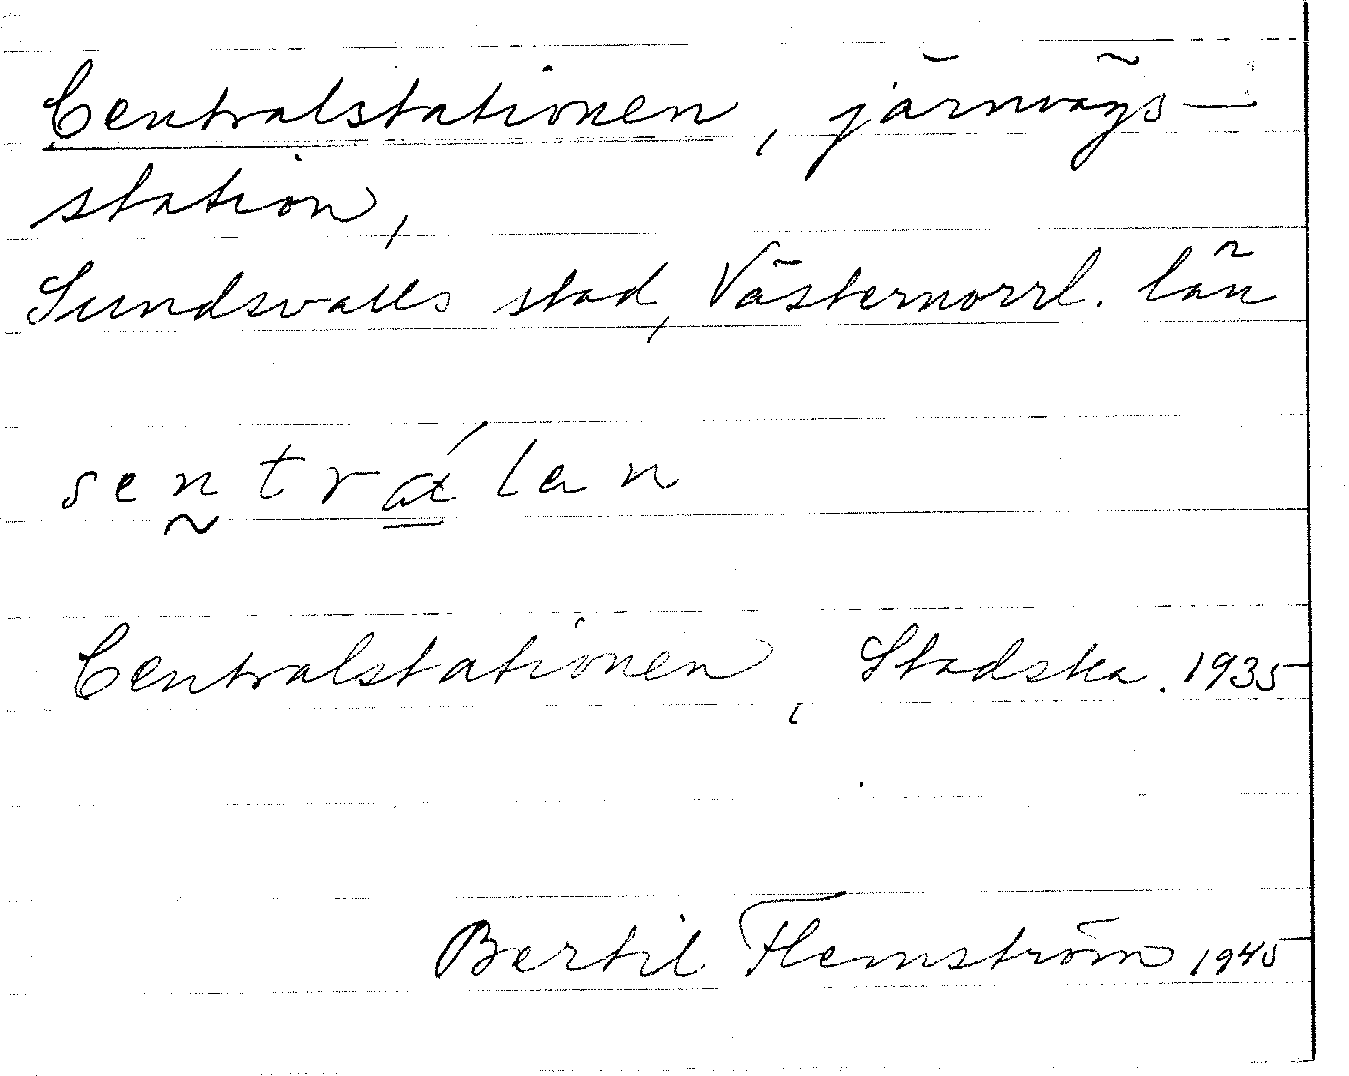 Centralstationen, järnvägs-
station,
Sundsvalls stad, Västernorrl. län
sentrálan
Centralstationen, Stadska. 1935
Bertil Flemström 1945